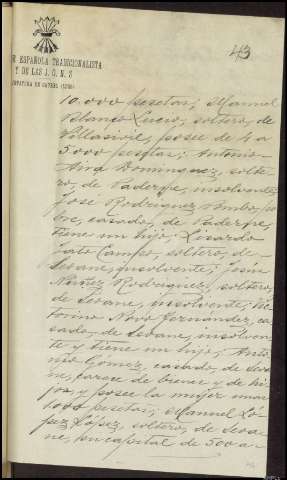 43
E ESPAÑOLA TRADICIONALISTA
Y DE LAS J. O. N. S.
JEFATURA DE
10.000 pesetas; Manuel
Blanco Lucio, soltero, de
posee de 4 a
5.000 pesetas; Antonio
Aira Dominguez, solte-
ro, de Paderne, insolvente;
José Rodriguez Pombo, po-
bre, casado, de Paderne,
tiene un hijo; Lisardo
Jato Campo, soltero, de
Seoane, insolvente; Jesús
Núñez Rodriguez, soltero,
de Seoane, insolvente; Vic-
torino Novo Fernández, ca-
sado, de Seoane, insolven-
te y tiene un hijo; Anto-
nio Gómez, casado, de Seoa-
ne, carece de bienes y de hi-
jos, y posee la mujer unas
1.000 pesetas; Manuel Ló-
pez López, soltero, de Seoa-
ne, un capital de 500 a